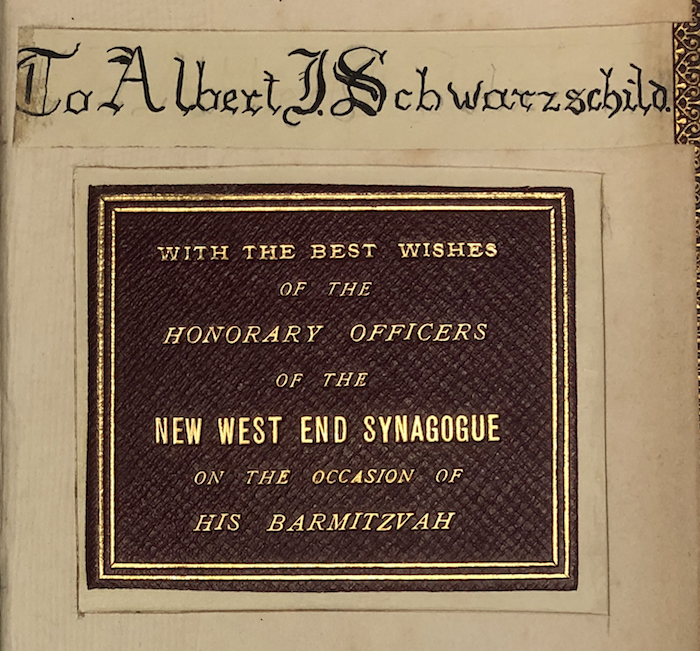 To Albert J. Schwarzschild.
WITH THE BEST WISHES
OF THE
HONORARY OFFICERS
OF THE
NEW WEST END SYNAGOGUE
ON THE OCCASION OF
HIS BARMITZVAH